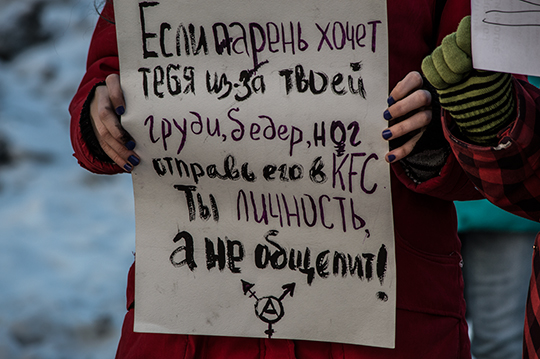 Если парень хочет
тебя из-за твоей
груди, бедер, ног
отправь его в KFC
Ты личность,
а не общепит!
A